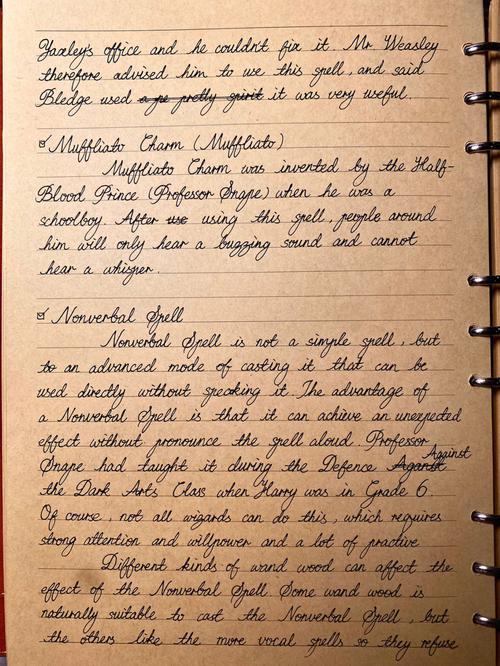 Yaxley's office and he couldn't fix it. Mr Weasley
therefore advised him to use this spell, and said
Bledge used a pe pretty spirit it was very useful.
Muffliato Charm (Muffliato)
Muffliato Charm was invented by the Half-
Blood Prince (Professor Snape) when he was a
schoolboy. After use using this spell, people around
him will only hear a buzzing sound and cannot
hear a whisper.
Nonverbal Spell
Nonverbal Spell is not a simple spell, but
to an advanced mode of casting it that can be
used directly without speaking it. The advantage of
a Nonverbal Spell is that it can achieve an unexpected
effect without pronounce the spell aloud. Professor
Snape had taught it during the Defence Against
the Dark Arts Class when Harry was in Grade 6.
Of course, not all wizards can do this, which requires
strong attention and willpower and a lot of practive
Different kinds of wand wood can affect the
effect of the Nonverbal Spell. Some wand wood is
naturally suitable to cast the Nonverbal Spell, but
the others like the more vocal spells so they refuse